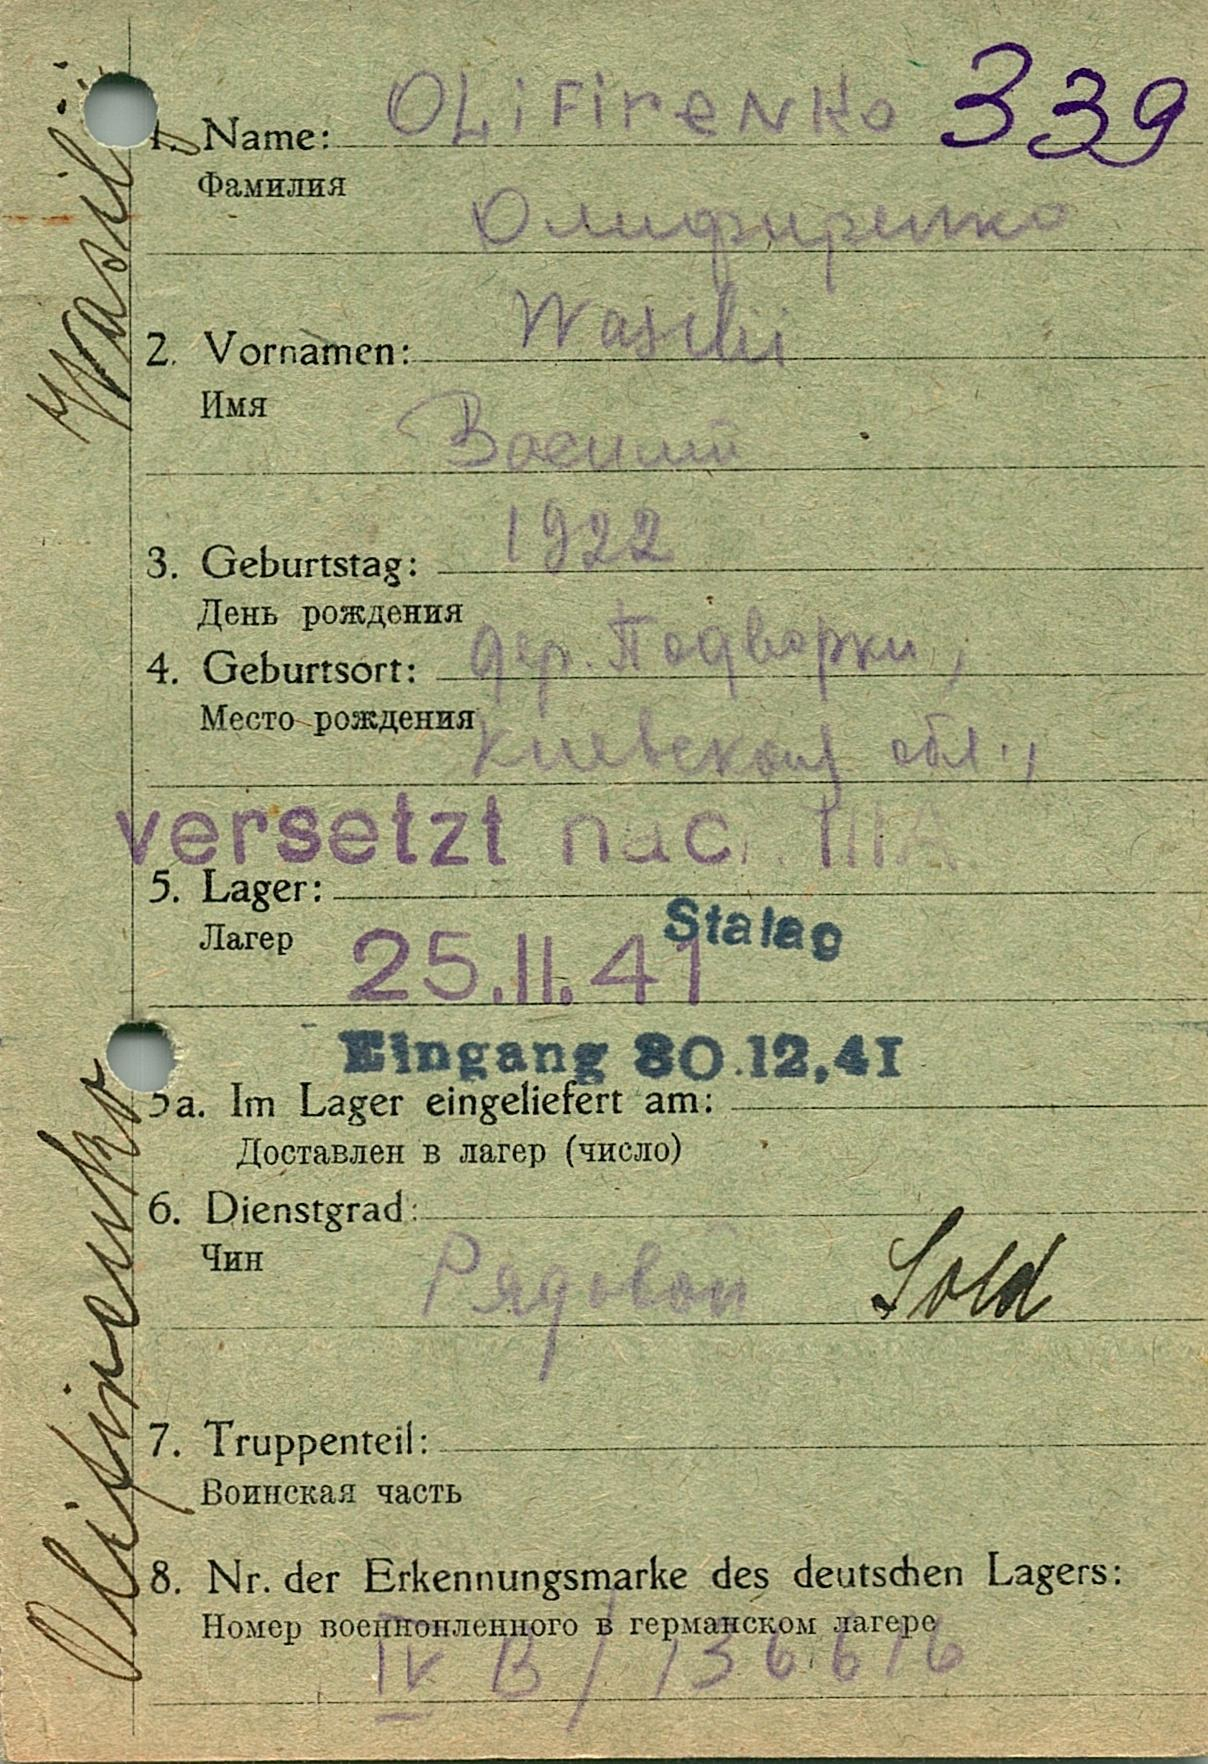 339
1. Name: OLiFirenko
Фамилия
Олифиренко
2. Vornamen: Wasilii
Имя
Василий
3. Geburtstag: 1922
День рождения
4. Geburtsort: дер. Подворки,
Место рождения
Киевской обл.,
versetzt nach IIIA
5. Lager:
Stalag
Лагер
25.11.41
Eingang 30.12.41
5a. Im Lager eingeliefert am:
Доставлен в лагер (число)
6. Dienstgrad:
Чин
Рядовой Sold
7. Truppenteil:
Воинская часть
8. Nr. der Erkennungsmarke des deutschen Lagers:
Номер военнопленного в германском лагере
IV B / 136616
Olifirenko
Wasilij